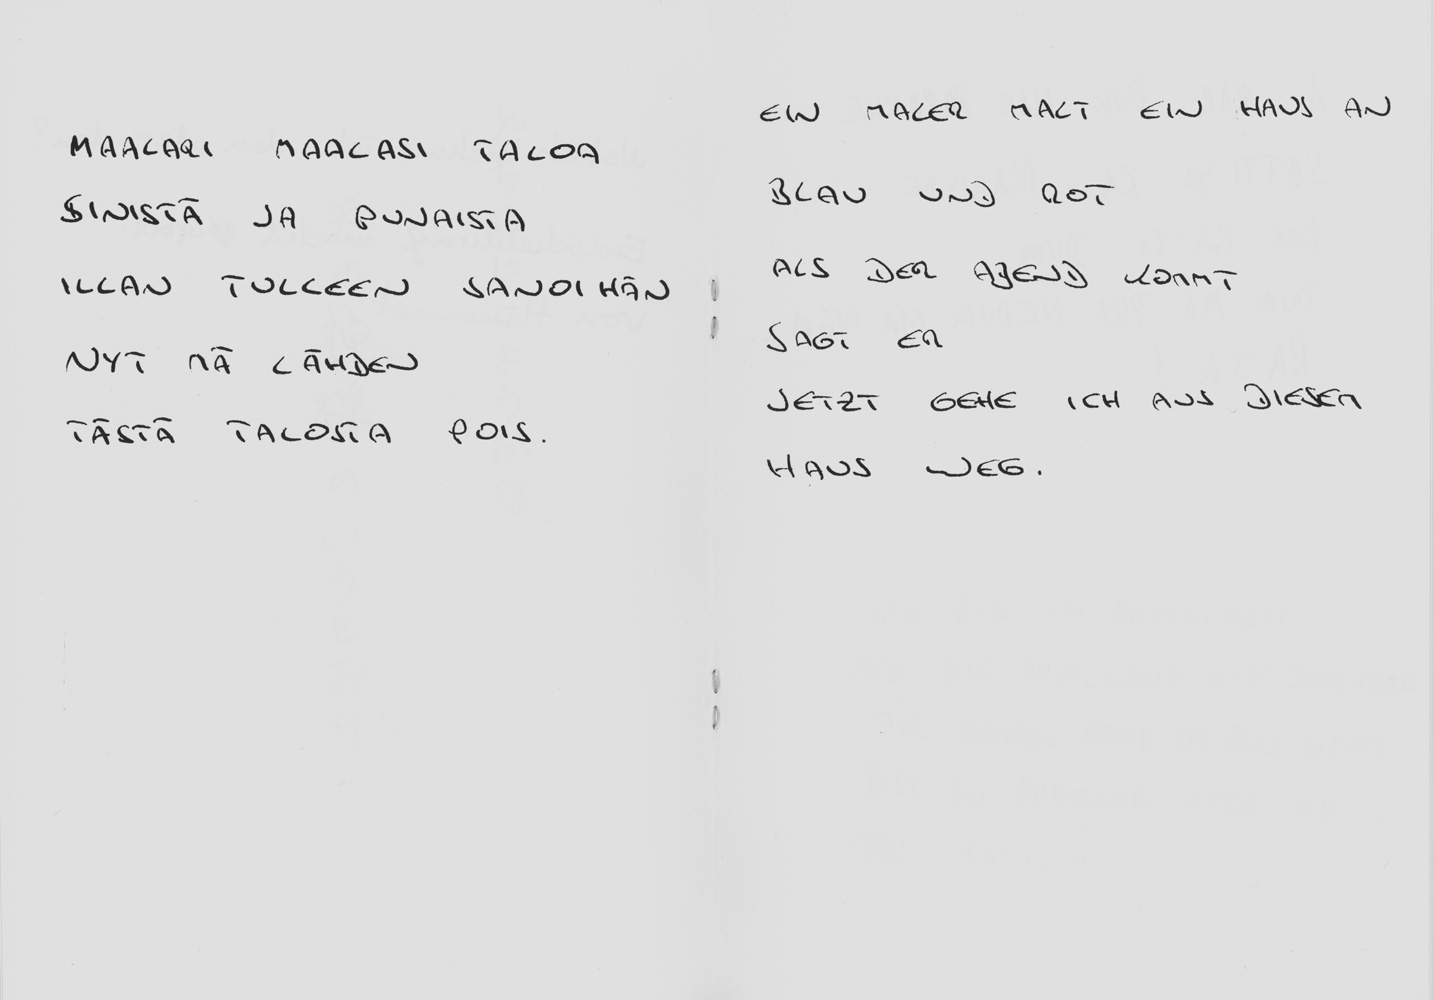 MAALARI MAALASI TALOA
SINISTÄ JA PUNAISTA
ILLAN TULLEEN SANOI HÄN
NYT MÄ LÄHDEN
TÄSTÄ TALOSTA POIS.
EIN MALER MALT EIN HAUS AN
BLAU UND ROT
ALS DER ABEND KOMMT
SAGT ER
JETZT GEHE ICH AUS DIESEM
HAUS WEG.